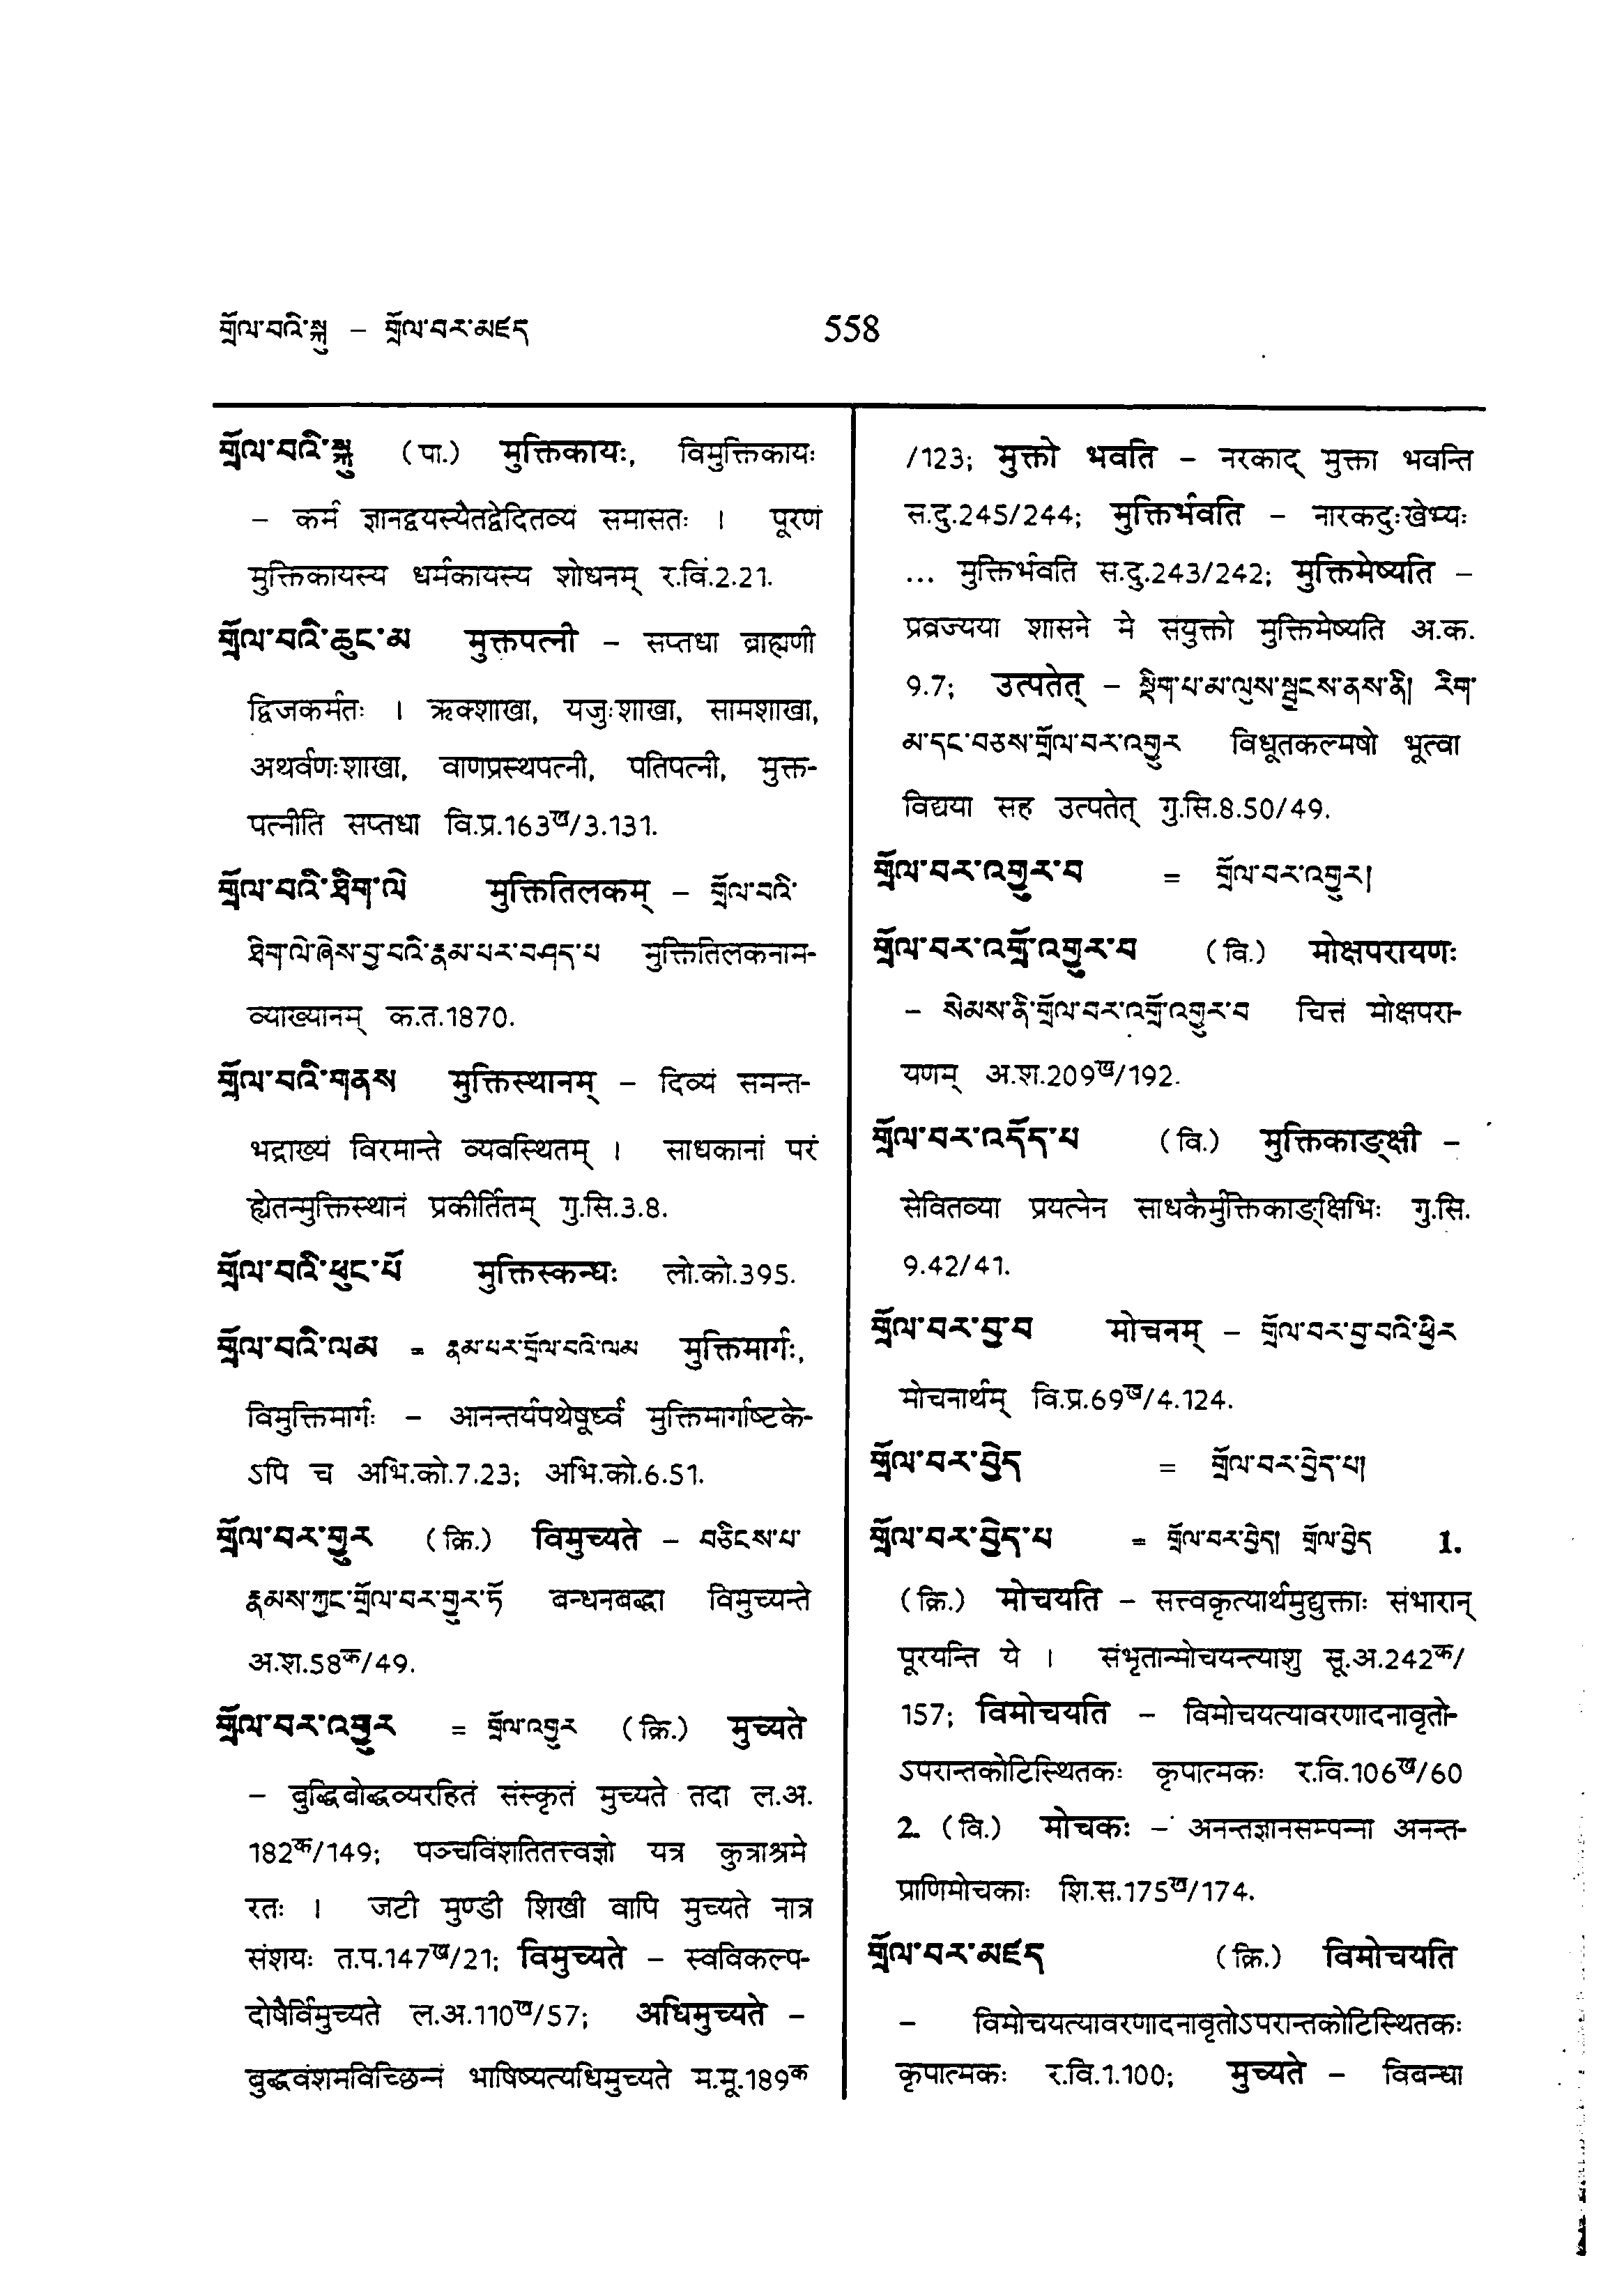 གྲོལ་བའི་སྐུ – གྲོལ་བར་མཛད
558
གྲོལ་བའི་སྐུ (पा.) मुक्तिकायः, विमुक्तिकायः
– कर्म ज्ञानद्वयस्यैतद्वेदितव्यं समासतः । पूरणं
मुक्तिकायस्य धर्मकायस्य शोधनम् र.वि.2.21.
གྲོལ་བའི་ཆུང་མ मुक्तपत्नी – सप्तधा ब्राह्मणी
द्विजकर्मतः । ऋक्शाखा, यजुःशाखा, सामशाखा,
अथर्वणःशाखा, वाणप्रस्थपत्नी, पतिपत्नी, मुक्त-
पत्नीति सप्तधा वि.प्र.163ख/3.131.
གྲོལ་བའི་ཐིག་ལེ मुक्तितिलकम् – གྲོལ་བའི་
ཐིག་ལེ་ཞེས་བྱ་བའི་རྣམ་པར་བཤད་པ मुक्तितिलकनाम-
व्याख्यानम् क.त.1870.
གྲོལ་བའི་གནས मुक्तिस्थानम् – दिव्यं समन्त-
भद्राख्यं विरमान्ते व्यवस्थितम् । साधकानां परं
ह्येतन्मुक्तिस्थानं प्रकीर्तितम् गु.सि.3.8.
གྲོལ་བའི་ཕུང་པོ मुक्तिस्कन्धः लो.को.395.
གྲོལ་བའི་ལམ = རྣམ་པར་གྲོལ་བའི་ལམ मुक्तिमार्गः,
विमुक्तिमार्गः – आनन्तर्यपथेषूर्ध्वं मुक्तिमार्गाष्टके-
ऽपि च अभि.को.7.23; अभि.को.6.51.
གྲོལ་བར་གྱུར (क्रि.) विमुच्यते – བཅིངས་པ་
རྣམས་ཀྱང་གྲོལ་བར་གྱུར་ཏོ बन्धनबद्धा विमुच्यन्ते
अ.श.58क/49.
གྲོལ་བར་འགྱུར = གྲོལ་འགྱུར (क्रि.) मुच्यते
– बुद्धिबोद्धव्यरहितं संस्कृतं मुच्यते तदा ल.अ.
182क/149; पञ्चविंशतितत्त्वज्ञो यत्र कुत्राश्रमे
रतः । जटी मुण्डी शिखी वापि मुच्यते नात्र
संशयः त.प.147ख/21; विमुच्यते – स्वविकल्प-
दोषैर्विमुच्यते ल.अ.110ख/57; अधिमुच्यते –
बुद्धवंशमविच्छिन्नं भाषिष्यत्यधिमुच्यते म.मू.189क
/123; मुक्तो भवति – नरकाद् मुक्ता भवन्ति
स.दु.245/244; मुक्तिर्भवति – नारकदुःखेभ्यः
... मुक्तिर्भवति स.दु.243/242; मुक्तिमेष्यति –
प्रव्रज्यया शासने मे संयुक्तो मुक्तिमेष्यति अ.क.
9.7; उत्पतेत् – སྡིག་པ་མ་ལུས་སྦྱངས་ནས་ནི། རིག་
མ་དང་བཅས་གྲོལ་བར་འགྱུར विधूतकल्मषो भूत्वा
विद्यया सह उत्पतेत् गु.सि.8.50/49.
གྲོལ་བར་འགྱུར་བ = གྲོལ་བར་འགྱུར།
གྲོལ་བར་འགྲོ་འགྱུར་བ (वि.) मोक्षपरायणः
– སེམས་ནི་གྲོལ་བར་འགྲོ་འགྱུར་བ चित्तं मोक्षपरा-
यणम् अ.श.209ख/192.
གྲོལ་བར་འདོད་པ (वि.) मुक्तिकाङ्क्षी –
सेवितव्या प्रयत्नेन साधकैर्मुक्तिकाङ्क्षिभिः गु.सि.
9.42/41.
གྲོལ་བར་བྱ་བ मोचनम् – གྲོལ་བར་བྱ་བའི་ཕྱིར
मोचनार्थम् वि.प्र.69ख/4.124.
གྲོལ་བར་བྱེད = གྲོལ་བར་བྱེད་པ།
གྲོལ་བར་བྱེད་པ = གྲོལ་བར་བྱེད། གྲོལ་བྱེད 1.
(क्रि.) मोचयति – सत्त्वकृत्यार्थमुद्युक्ताः संभारान्
पूरयन्ति ये । संभृतान्मोचयन्त्याशु सू.अ.242क/
157; विमोचयति – विमोचयत्यावरणादनावृतो-
ऽपरान्तकोटिस्थितकः कृपात्मकः र.वि.106ख/60
2. (वि.) मोचकः – अनन्तज्ञानसम्पन्ना अनन्त-
प्राणिमोचकाः शि.स.175ख/174.
གྲོལ་བར་མཛད (क्रि.) विमोचयति
– विमोचयत्यावरणादनावृतोऽपरान्तकोटिस्थितकः
कृपात्मकः र.वि.1.100; मुच्यते – विबन्धा